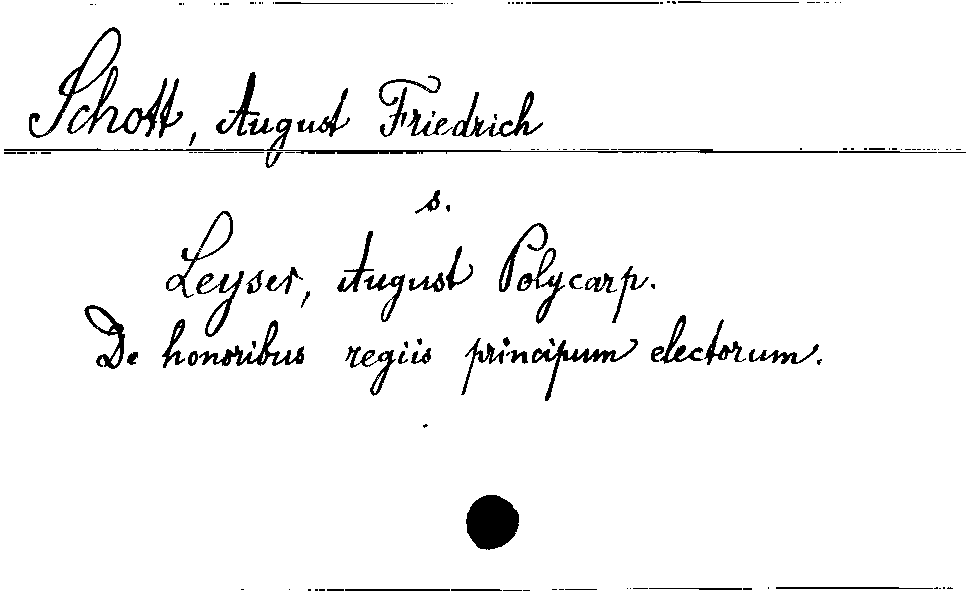 Schott, August Friedrich
s.
Leyser, August Polycarp.
De honoribus regiis principum electorum.